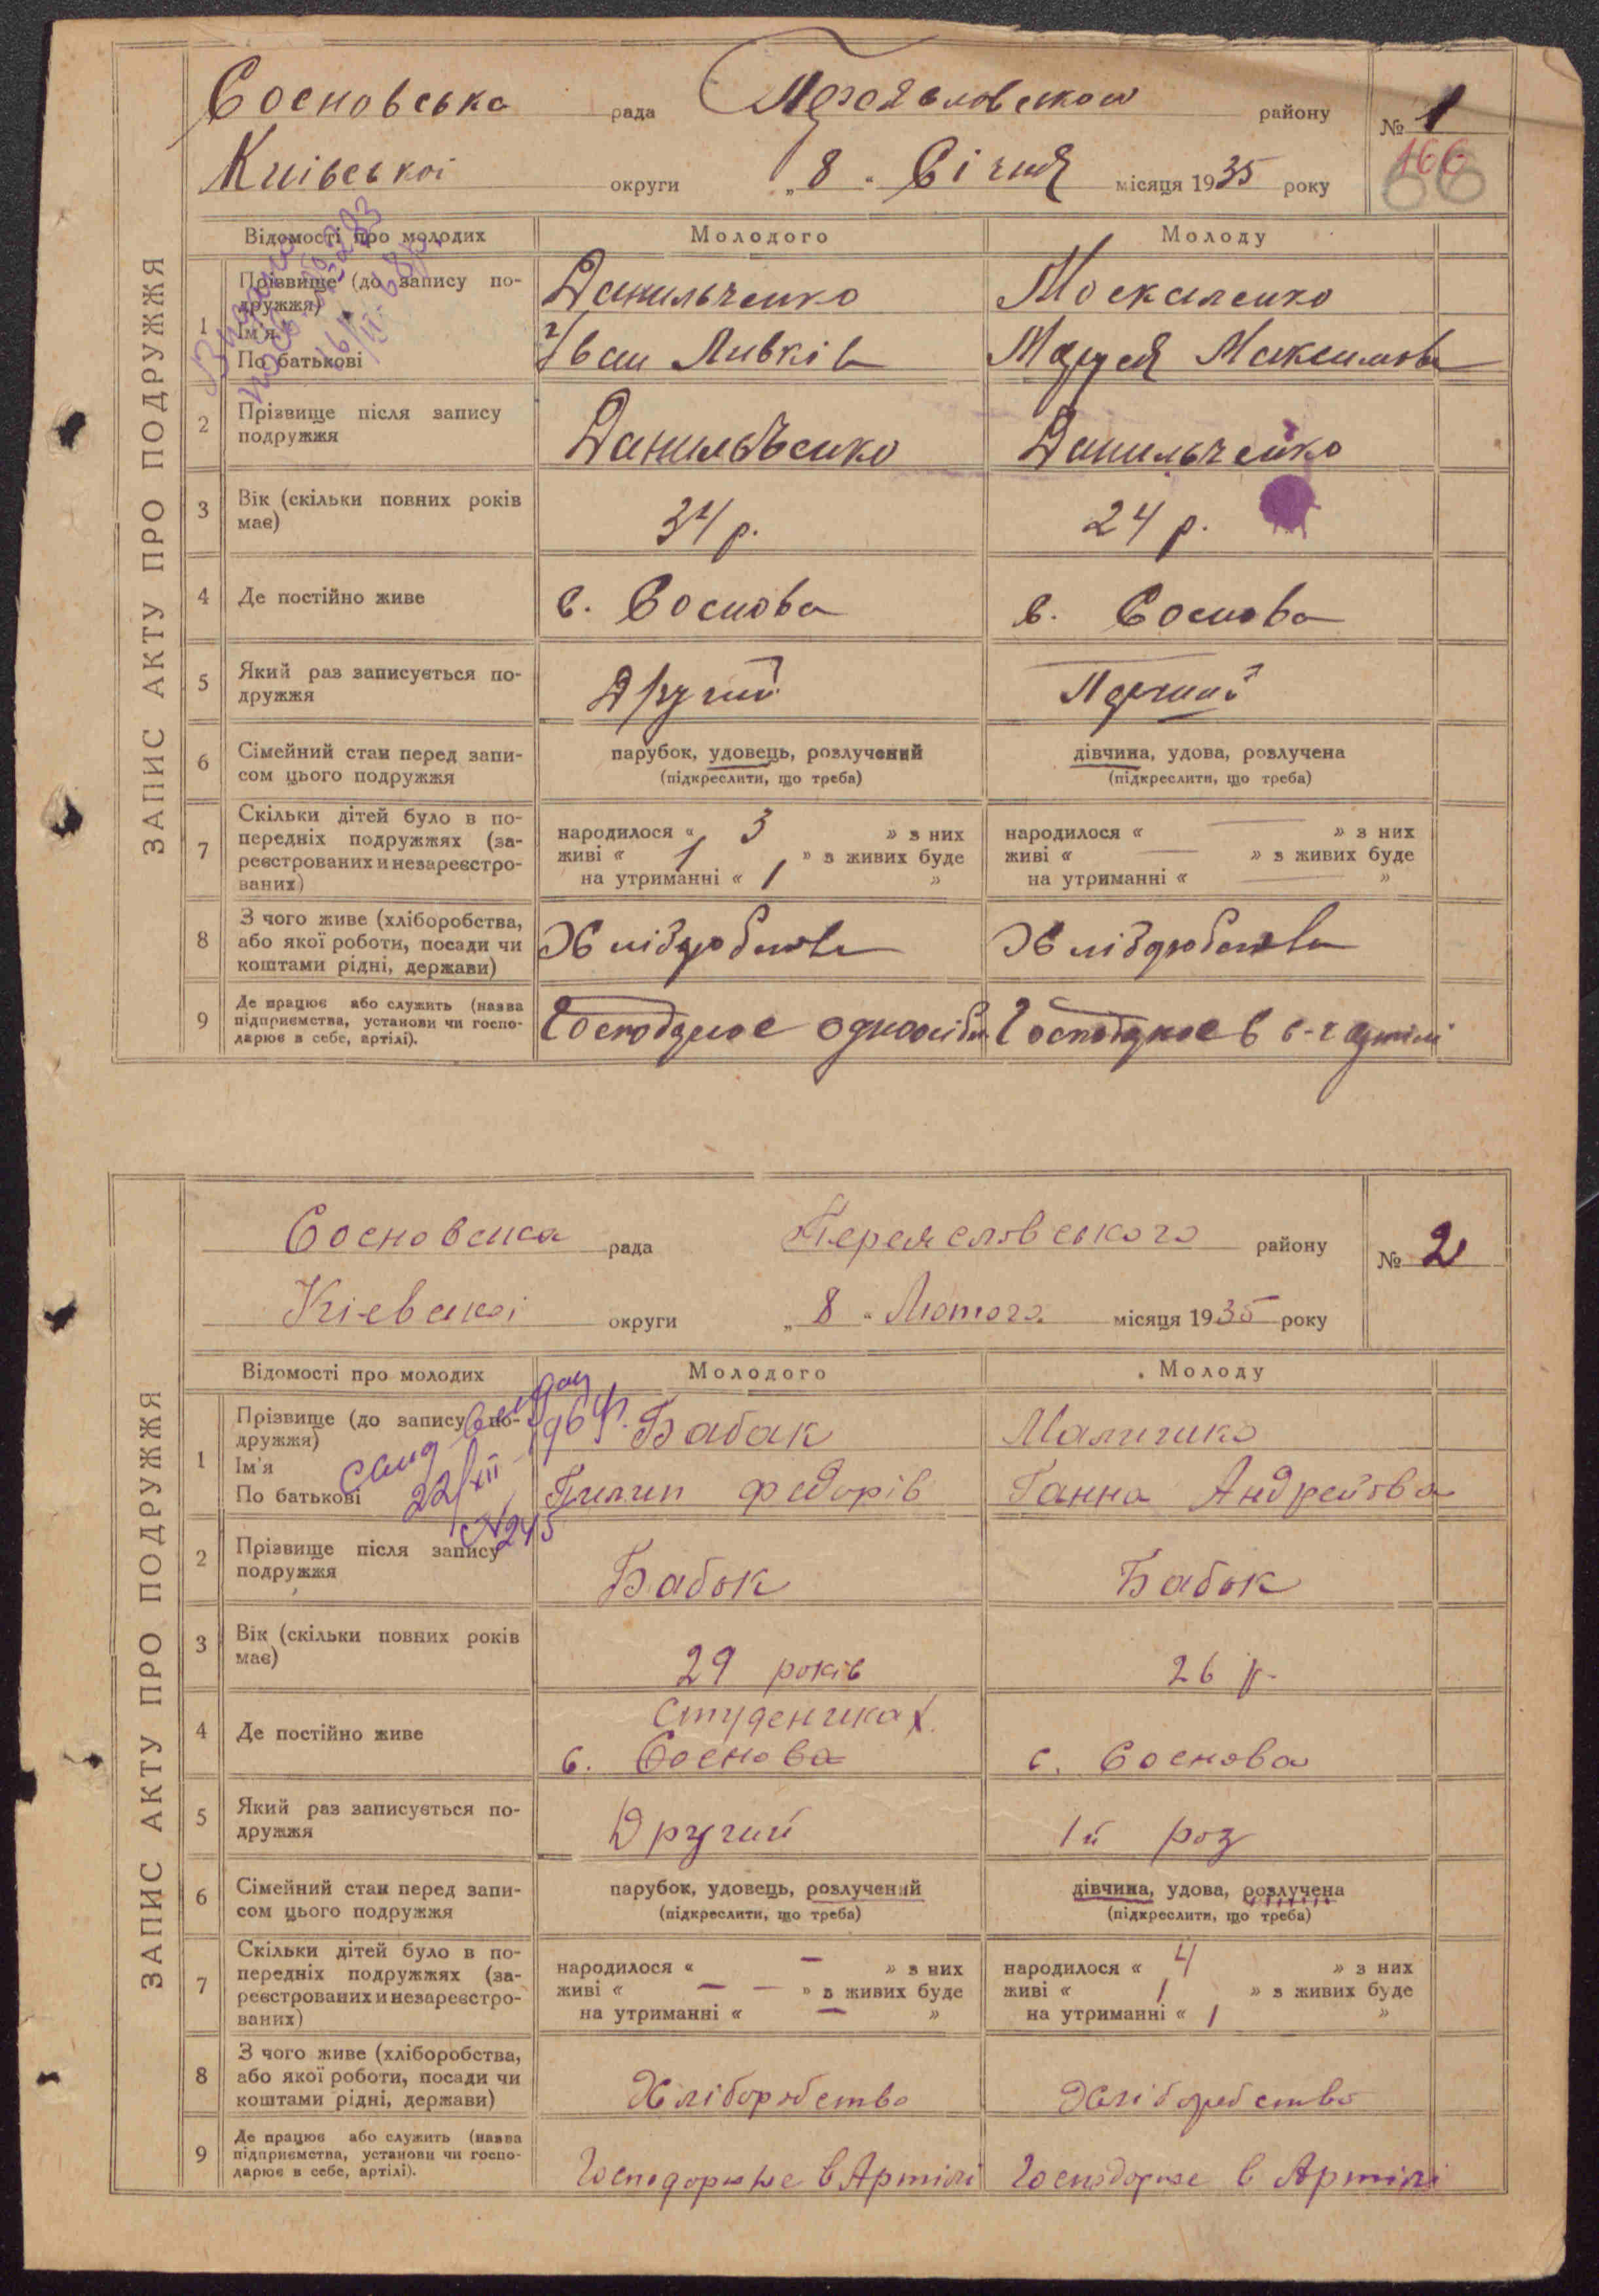 ЗАПИС АКТУ ПРО ПОДРУЖЖЯ
Сосновська рада району № 1
Київської округи „ 8 " Січня місяця 1935 року
166
66
Відомості про молодих Молодого Молоду
1 Прізвище (до запису по-
дружжя)
Ім'я
По батькові
Данильченко
Іван Ливків
Москаленко
Маруся Максимова
2 Прізвище після запису
подружжя
Данильченко Данильченко
3 Вік (скільки повних років
має)
34 р. 24 р.
4 Де постійно живе с. Соснова с. Соснова
5 Який раз записується по-
дружжя
Другий Перший
6 Сімейний стан перед запи-
сом цього подружжя
парубок, удовець, розлучений
(підкреслити, що треба)
дівчина, удова, розлучена
(підкреслити, що треба)
7 Скільки дітей було в по-
передніх подружжях (за-
реєстрованих и незареєстро-
ваних)
народилося « 3 » з них
живі « 1 » з живих буде
на утриманні « 1 »
народилося « — » з них
живі « — » з живих буде
на утриманні « — »
8 З чого живе (хліборобства,
або якої роботи, посади чи
коштами рідні, держави)
9 Де працює або служить (назва
підприємства, установи чи госпо-
дарює в себе, артілі).
ЗАПИС АКТУ ПРО ПОДРУЖЖЯ
Сосновська рада Переяславського району № 2
Київської округи „ 8 " Лютого місяця 1935 року
Відомості про молодих Молодого Молоду
22/XII 1964р.
№245
1 Прізвище (до запису по-
дружжя)
Ім'я
По батькові
Бабак
Пилип Федорів
Ганна Андрейова
2 Прізвище після запису
подружжя
Бабок Бабок
3 Вік (скільки повних років
має)
29 років 26 р.
4 Де постійно живе
с. Соснова с. Соснова
5 Який раз записується по-
дружжя
Другий 1й роз
6 Сімейний стан перед запи-
сом цього подружжя
парубок, удовець, розлучений
(підкреслити, що треба)
дівчина, удова, розлучена
(підкреслити, що треба)
7 Скільки дітей було в по-
передніх подружжях (за-
реєстрованих и незареєстро-
ваних)
народилося « — » з них
живі « — — » з живих буде
на утриманні « — »
народилося « 4 » з них
живі « 1 » з живих буде
на утриманні « 1 »
8 З чого живе (хліборобства,
або якої роботи, посади чи
коштами рідні, держави)
Хліборобство Хліборобство
9 Де працює або служить (назва
підприємства, установи чи госпо-
дарює в себе, артілі).
в Артілі в Артілі